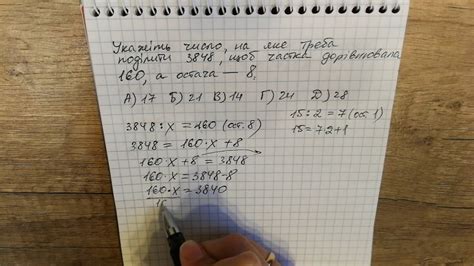 Укажіть число, на яке треба
поділити 3848, щоб частка дорівнювала
160, а остача — 8.
А) 17 Б) 21 В) 14 Г) 24 Д) 28
3848 : x = 160 (ост. 8)
3848 = 160 · x + 8
160 · x + 8 = 3848
160 · x = 3848 - 8
160 · x = 3840
15 : 2 = 7 (ост 1)
15 = 7·2+1